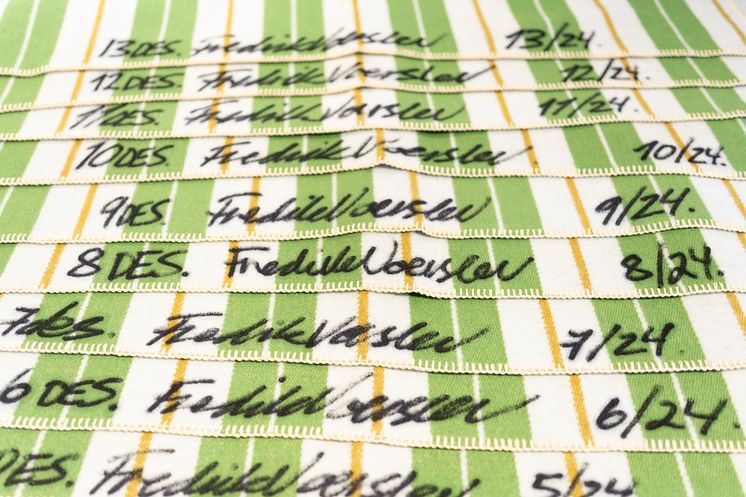 13 DES. Fredrik Værslev 13/24.
12 DES Fredrik Værslev 12/24.
11 DES. Fredrik Værslev 11/24.
10 DES. Fredrik Værslev 10/24.
9 DES. Fredrik Værslev 9/24.
8 DES. Fredrik Værslev 8/24.
7 des. Fredrik Værslev 7/24
6 DES. Fredrik Værslev 6/24.
DES. Fredrik Værslev 5/24